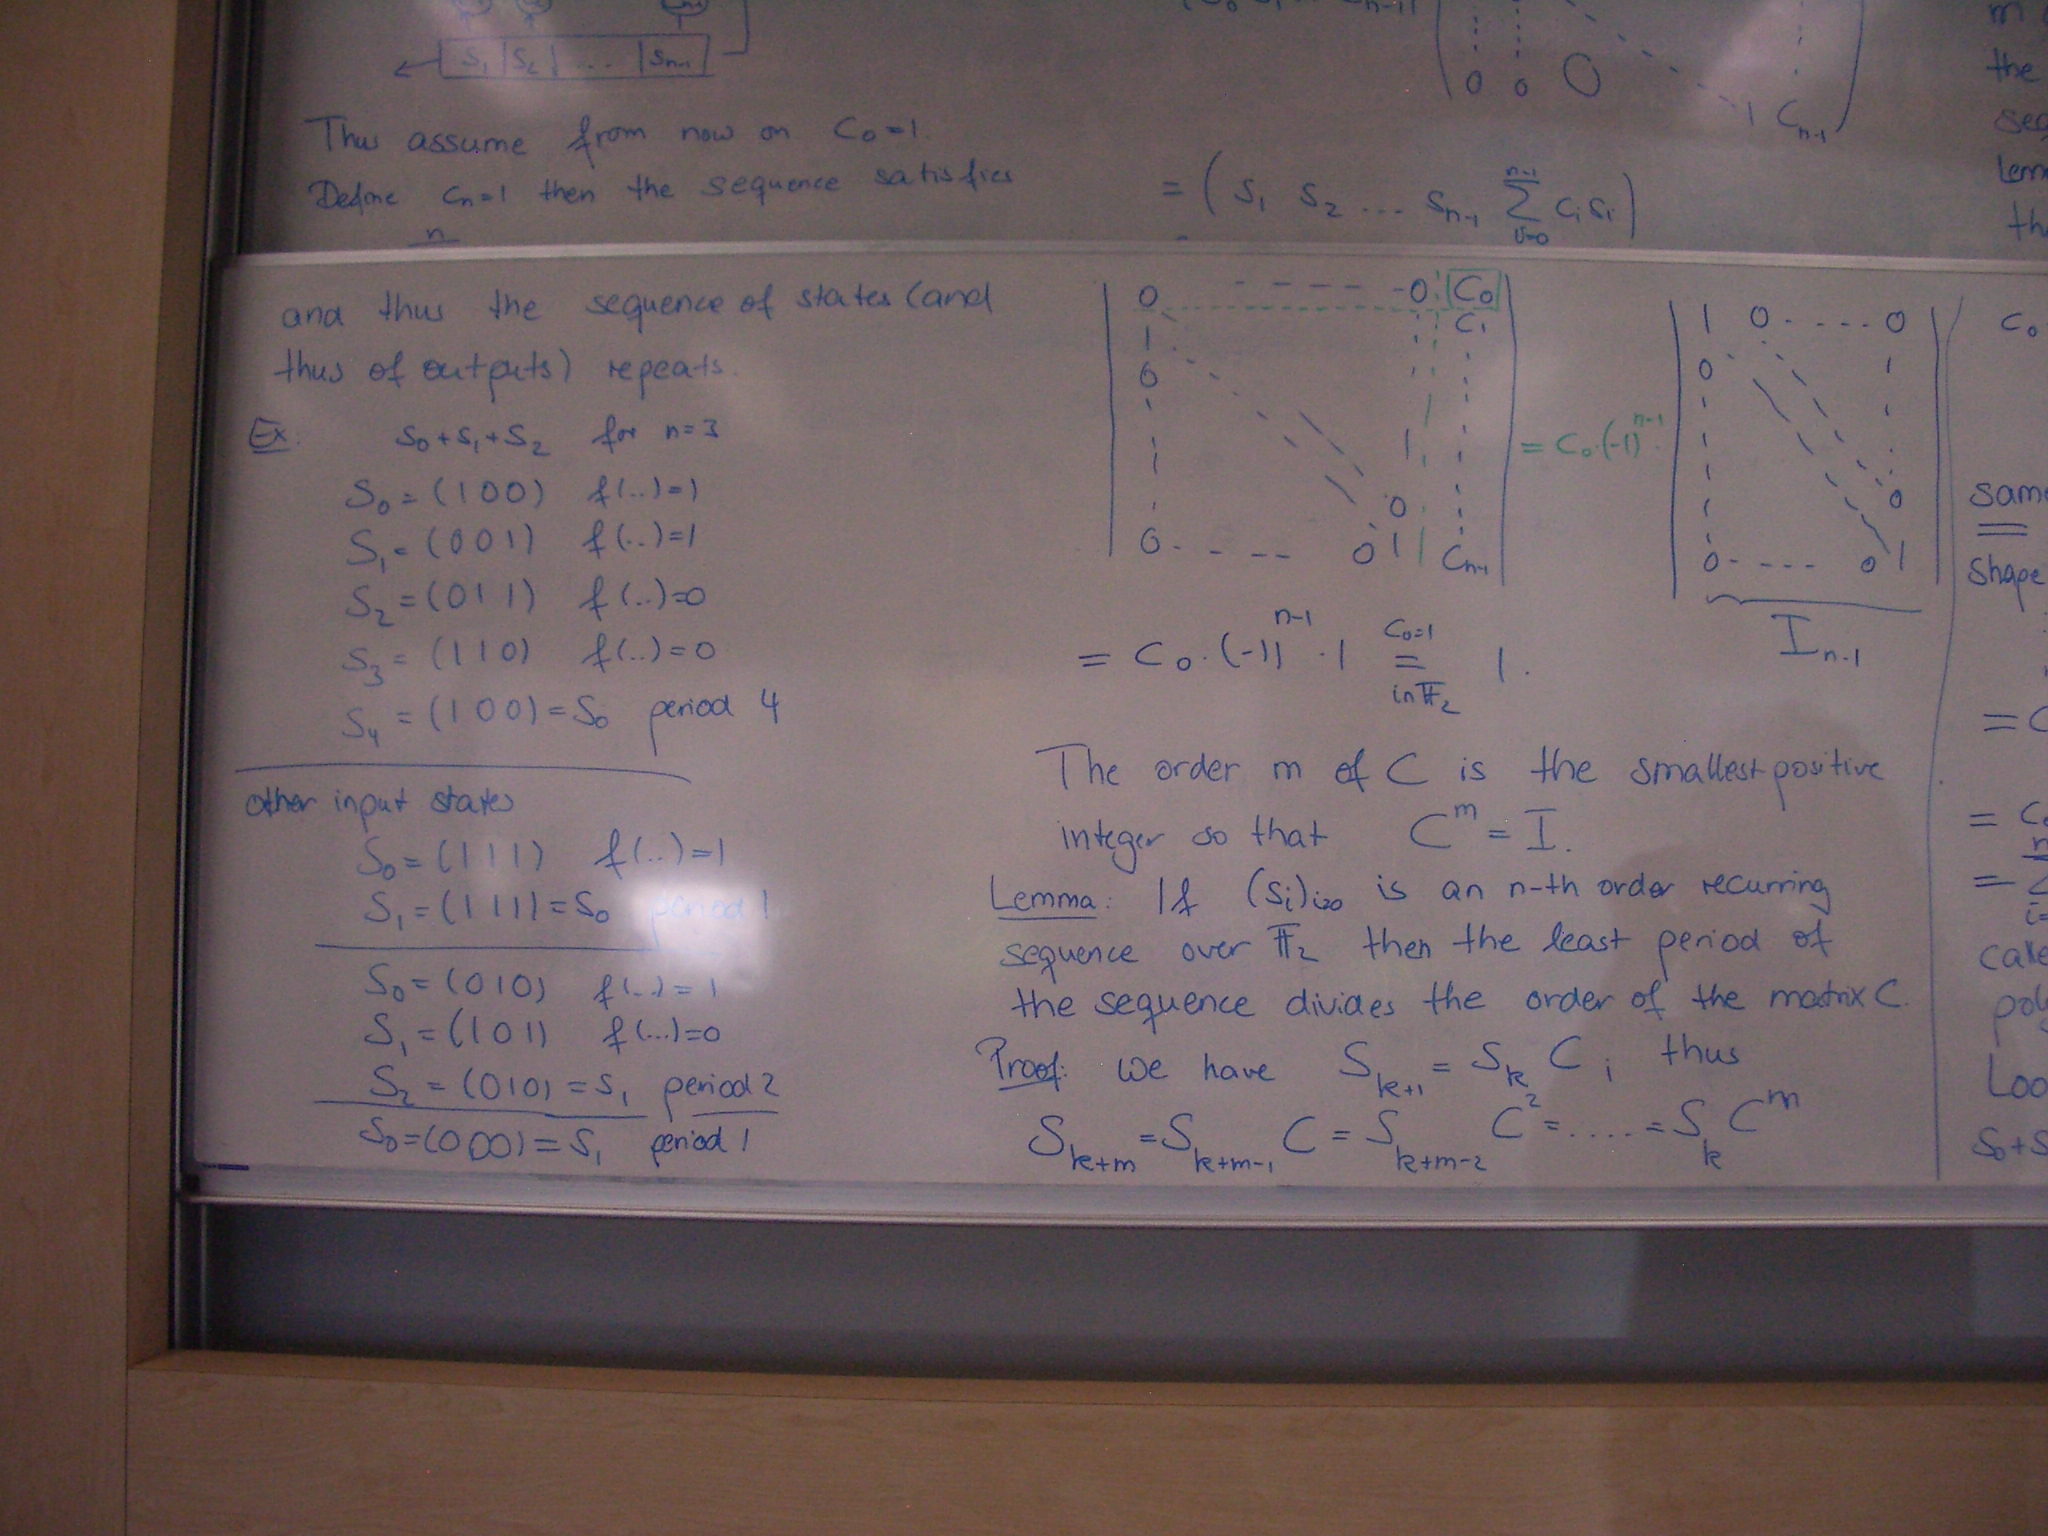 S₁ | S₂ | .... | Sₙ₋₁
Thus assume from now on C₀=1.
Define Cₙ=1 then the sequence satisfies
n
0 0 0
1 Cₙ₋₁
= ( S₁ S₂ ... Sₙ₋₁ ∑ᵢ₌₀ⁿ⁻¹ cᵢsᵢ )
m
the
lem
and thus the sequence of states (and
thus of outputs) repeats.
Ex: S₀+S₁+S₂ for n=3
S₀=(100) f(..)=1
S₁=(001) f(..)=1
S₂=(011) f(..)=0
S₃=(110) f(..)=0
S₄=(100)=S₀ period 4
other input states
S₀=(111) f(..)=1
S₁=(111)=S₀ period 1
S₀=(010) f(..)=1
S₁=(101) f(...)=0
S₂=(010)=S₁ period 2
S₀=(000)=S₁ period 1
| 0 - - - - - 0 C₀ |
1 C₁
0
1
0
0 - - - - 0 1 Cₙ₋₁
= C₀·(-1)ⁿ⁻¹·
| 1 0 - - - - 0 |
0
0
0 - - - - 0 1
Iₙ₋₁
= C₀·(-1)ⁿ⁻¹·1 = 1.
C₀=1
in 𝔽₂
The order m of C is the smallest positive
integer so that Cᵐ=I.
Lemma: If (Sᵢ)ᵢ≥₀ is an n-th order recurring
sequence over 𝔽₂ then the least period of
the sequence divides the order of the matrix C.
Proof: We have Sₖ₊₁=SₖC; thus
Sₖ₊ₘ=Sₖ₊ₘ₋₁C=Sₖ₊ₘ₋₂C²=....=SₖCᵐ
C₀
same
shape
= C
= C₀
=
i=
calle
poly
Loo
S₀+S